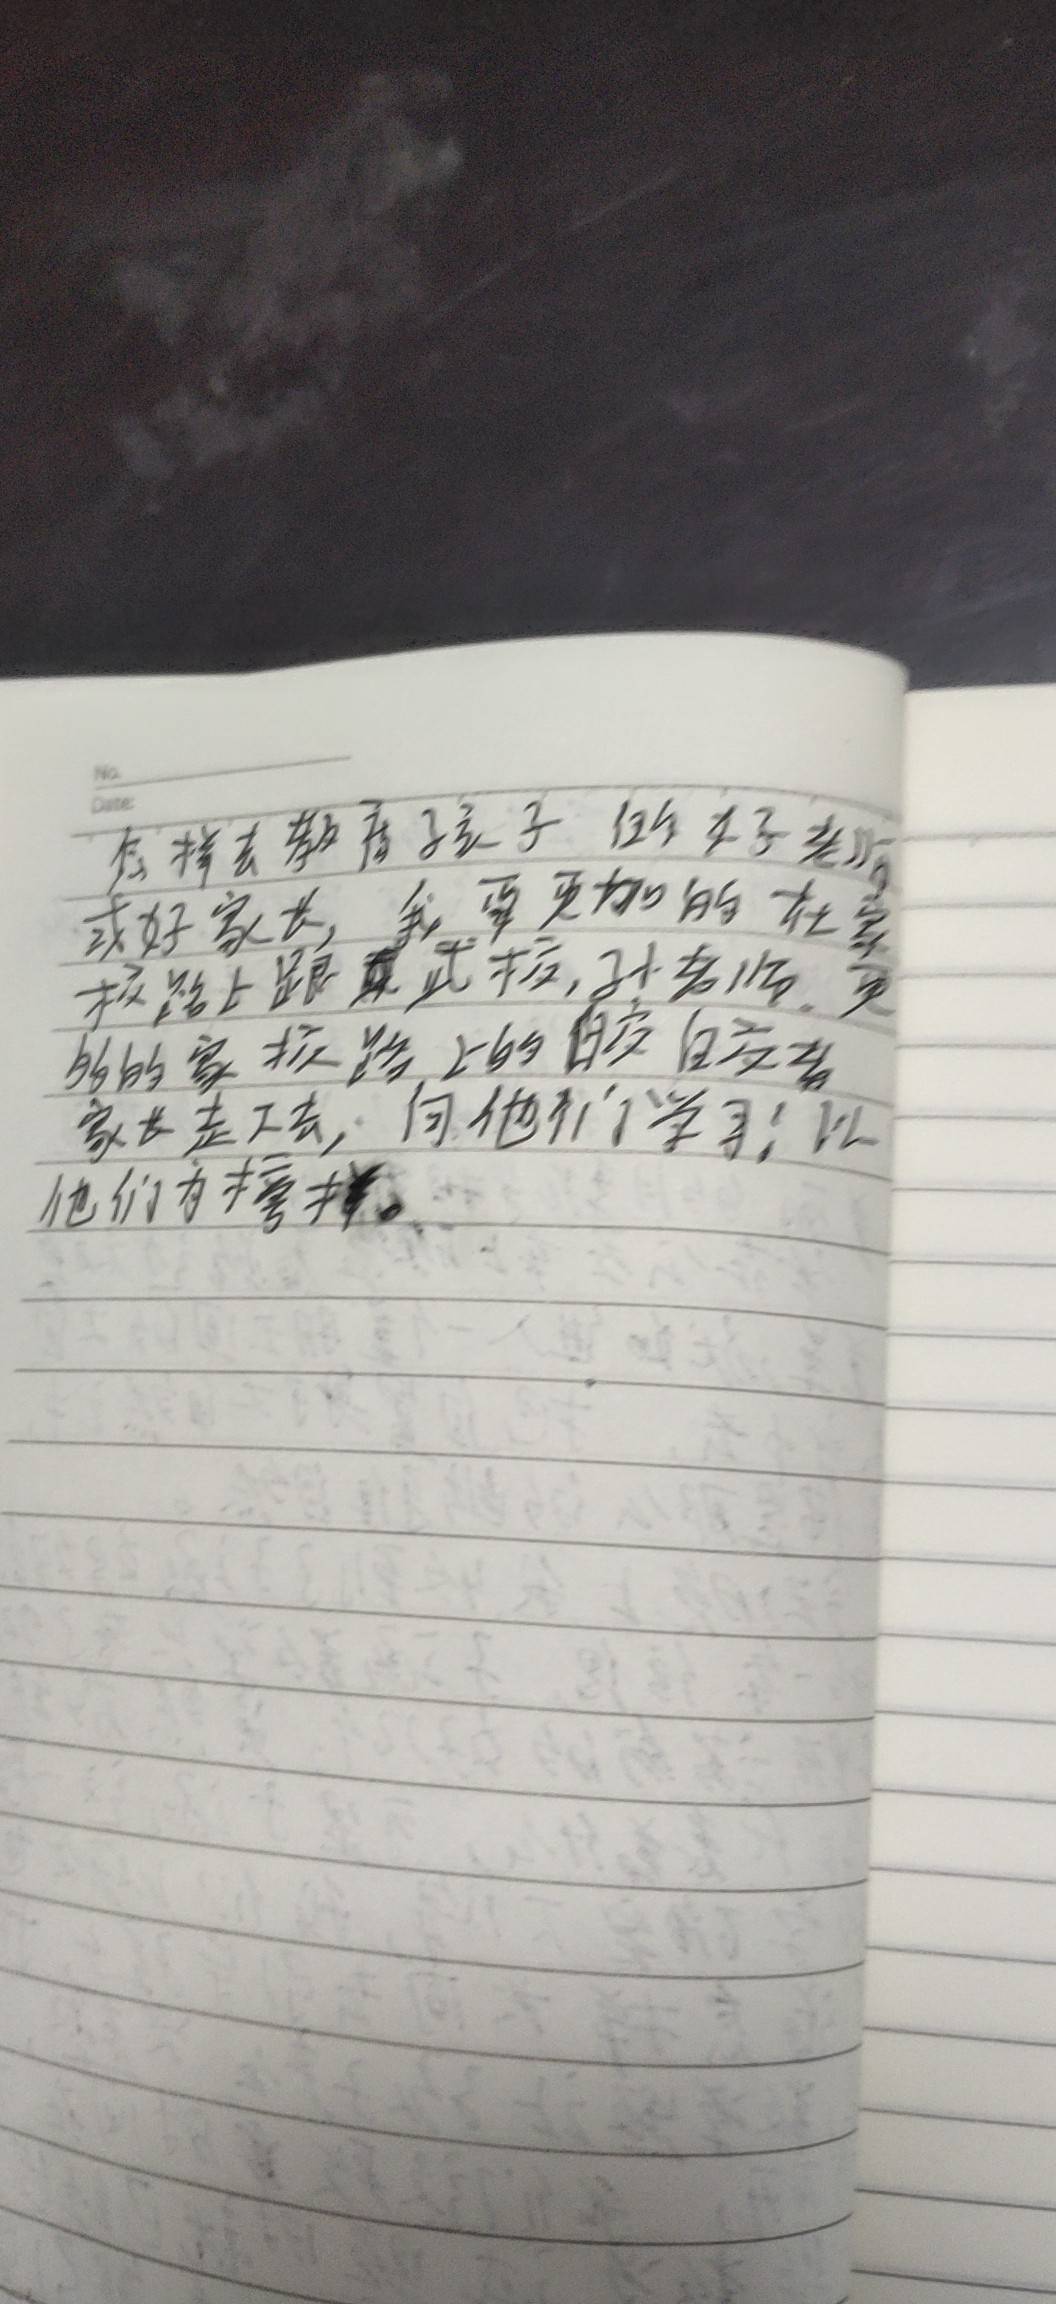 No.
Date:
怎样去教育孩子 做个好老师
或好家长,我要更加的在家
校路上跟 武校,孙老师.更
多的家校路上的
家长走下去,向他们学习;以
他们为榜样。